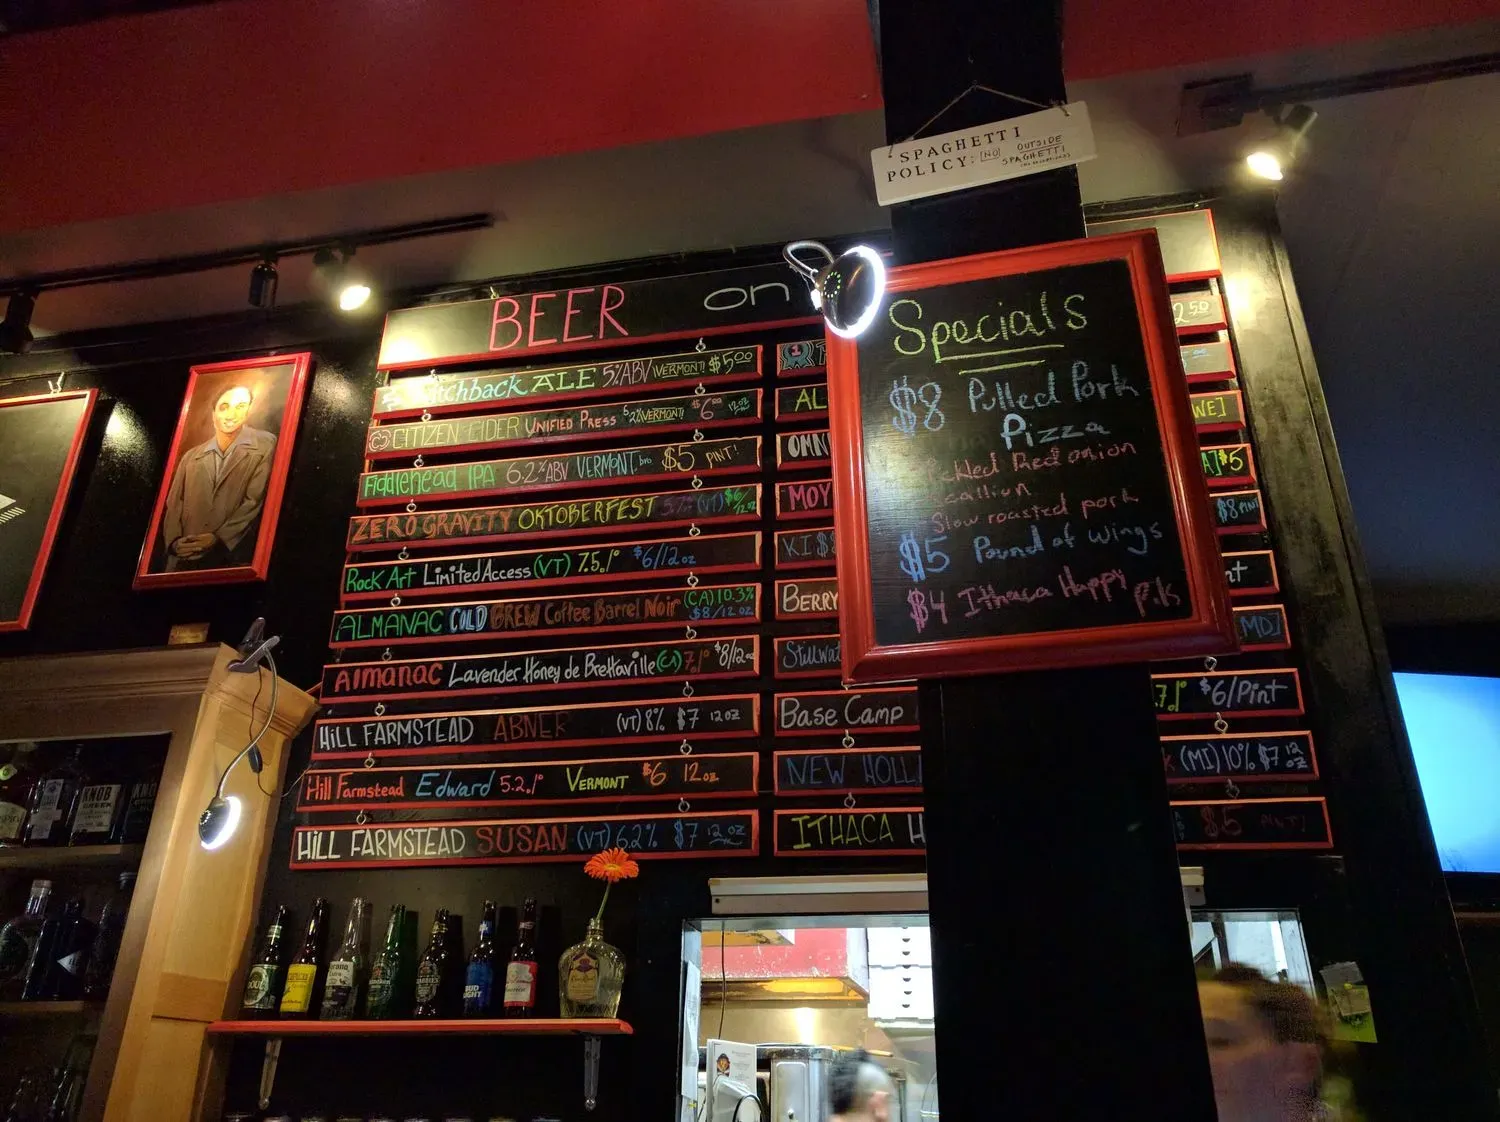 SPAGHETTI
POLICY: [NO] OUTSIDE
SPAGHETTI
BEER on
Switchback ALE 5% ABV VERMONT! $5.00
CITIZEN CIDER UNIFIED PRESS VERMONT! $6.00 12oz
Fiddlehead IPA 6.2% ABV VERMONT bro $5 PINT!
ZERO GRAVITY OKTOBERFEST (VT) $6/12oz
Rock Art Limited Access (VT) 7.5% $6/12oz
ALMANAC COLD BREW Coffee Barrel Noir (CA) 10.3% $8/12oz
Almanac Lavender Honey de Brettaville (CA) 7.1% $8/12oz
HILL FARMSTEAD ABNER (VT) 8% $7 12oz
Hill Farmstead Edward 5.2% VERMONT $6 12oz
HILL FARMSTEAD SUSAN (VT) 6.2% $7 12oz
AL
OMN
MOY
KI
BERRY
Stillwat
Base Camp
NEW HOLL
ITHACA H
Specials
$8 Pulled Pork
Pizza
Pickled Red onion
Scallion
Slow roasted pork
$5 Pound of Wings
$4 Ithaca Happy P.ls
2.50
NE]
A] $5
$8 PINT
nt
MD]
7.1% $6/Pint
k (MI) 10% $7 12oz
$5 PINT]
KNOB
CREEK
BUD
LIGHT